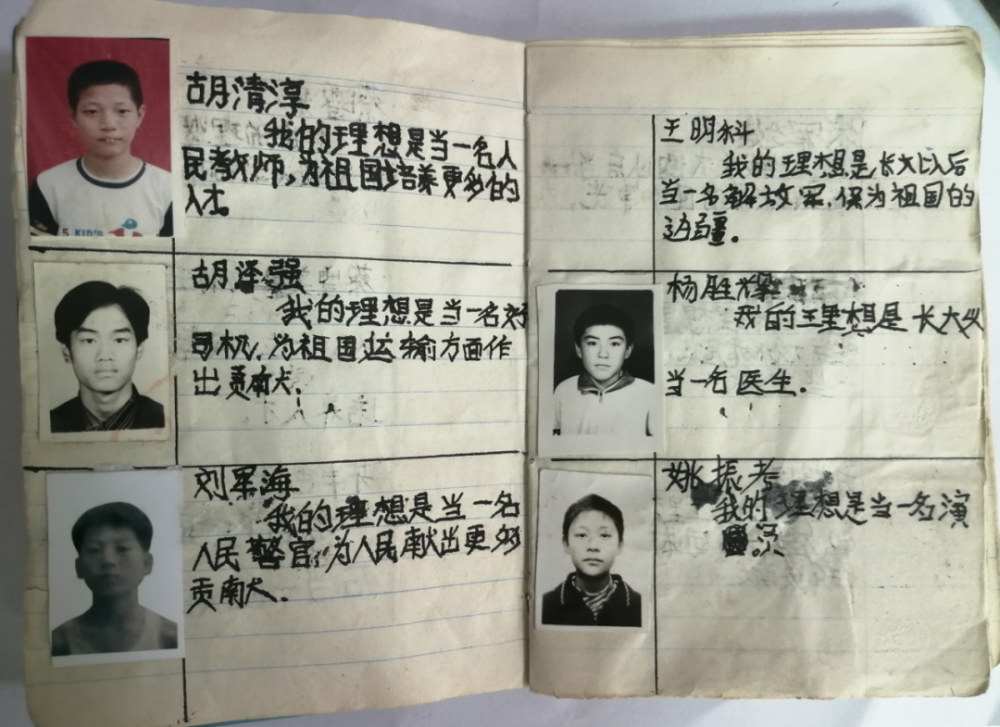 胡清淳
我的理想是当一名人
民教师,为祖国培养更多的
人才。
胡泽强
我的理想是当一名好
司机,为祖国运输方面作
出贡献。
刘军海
我的理想是当一名
人民警官,为人民献出更多
贡献。
王明科
我的理想是长大以后
当一名解放军,保为祖国的
边疆。
杨胜辉
我的理想是长大以
当一名医生.
姚振考
我的理想是当一名演